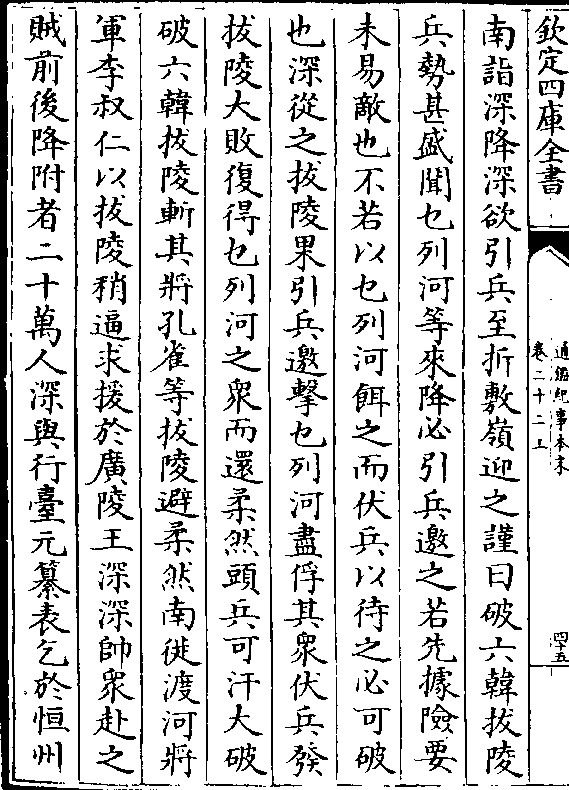 欽定四庫全書
通鑑紀事本末
卷二十二上
四十五
南詣深降深欲引兵至折敷嶺迎之謹曰破六韓拔陵
兵勢甚盛聞乜列河等來降必引兵邀之若先據險要
未易敵也不若以乜列河餌之而伏兵以待之必可破
也深從之拔陵果引兵邀擊乜列河盡俘其衆伏兵發
拔陵大敗復得乜列河之衆而還柔然頭兵可汗大破
破六韓拔陵斬其將孔雀等拔陵避柔然南徙渡河將
軍李叔仁以拔陵稍逼求援於廣陵王深深帥衆赴之
賊前後降附者二十萬人深與行臺元纂表乞於恒州